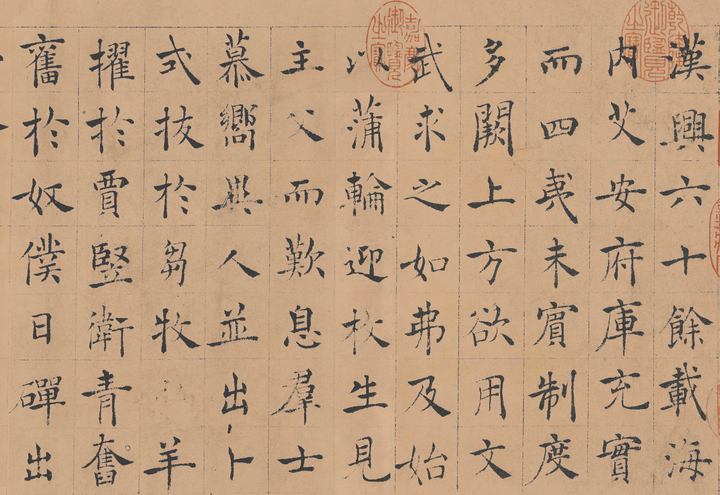 漢興六十餘載海
內艾安府庫充實
而四夷未賓制度
多闕上方欲用文
武求之如弗及始
以蒲輪迎枚生見
主父而歎息羣士
慕嚮異人並出卜
式拔於芻牧羊
擢於賈豎衛青奮
舊於奴僕日磾出